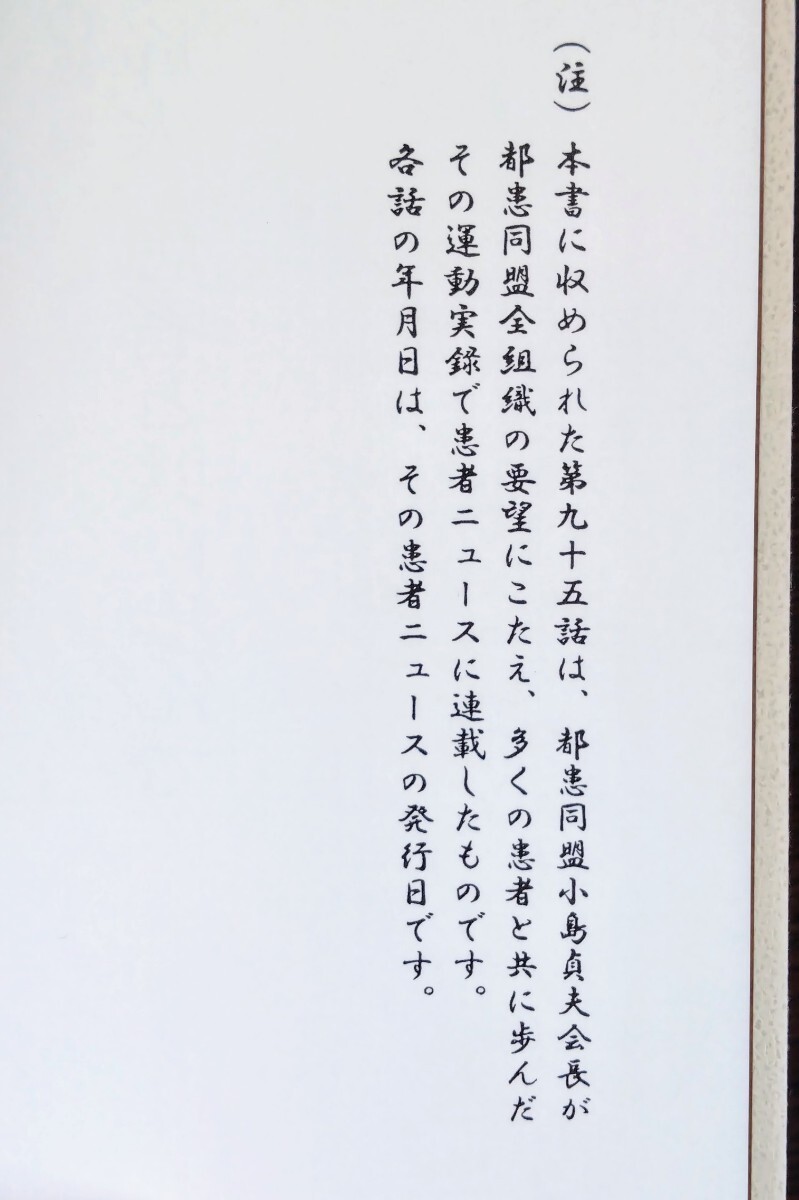 （注）　本書に収められた第九十五話は、都患同盟小島貞夫会長が
都患同盟全組織の要望にこたえ、多くの患者と共に歩んだ
その運動実録で患者ニュースに連載したものです。
各話の年月日は、その患者ニュースの発行日です。